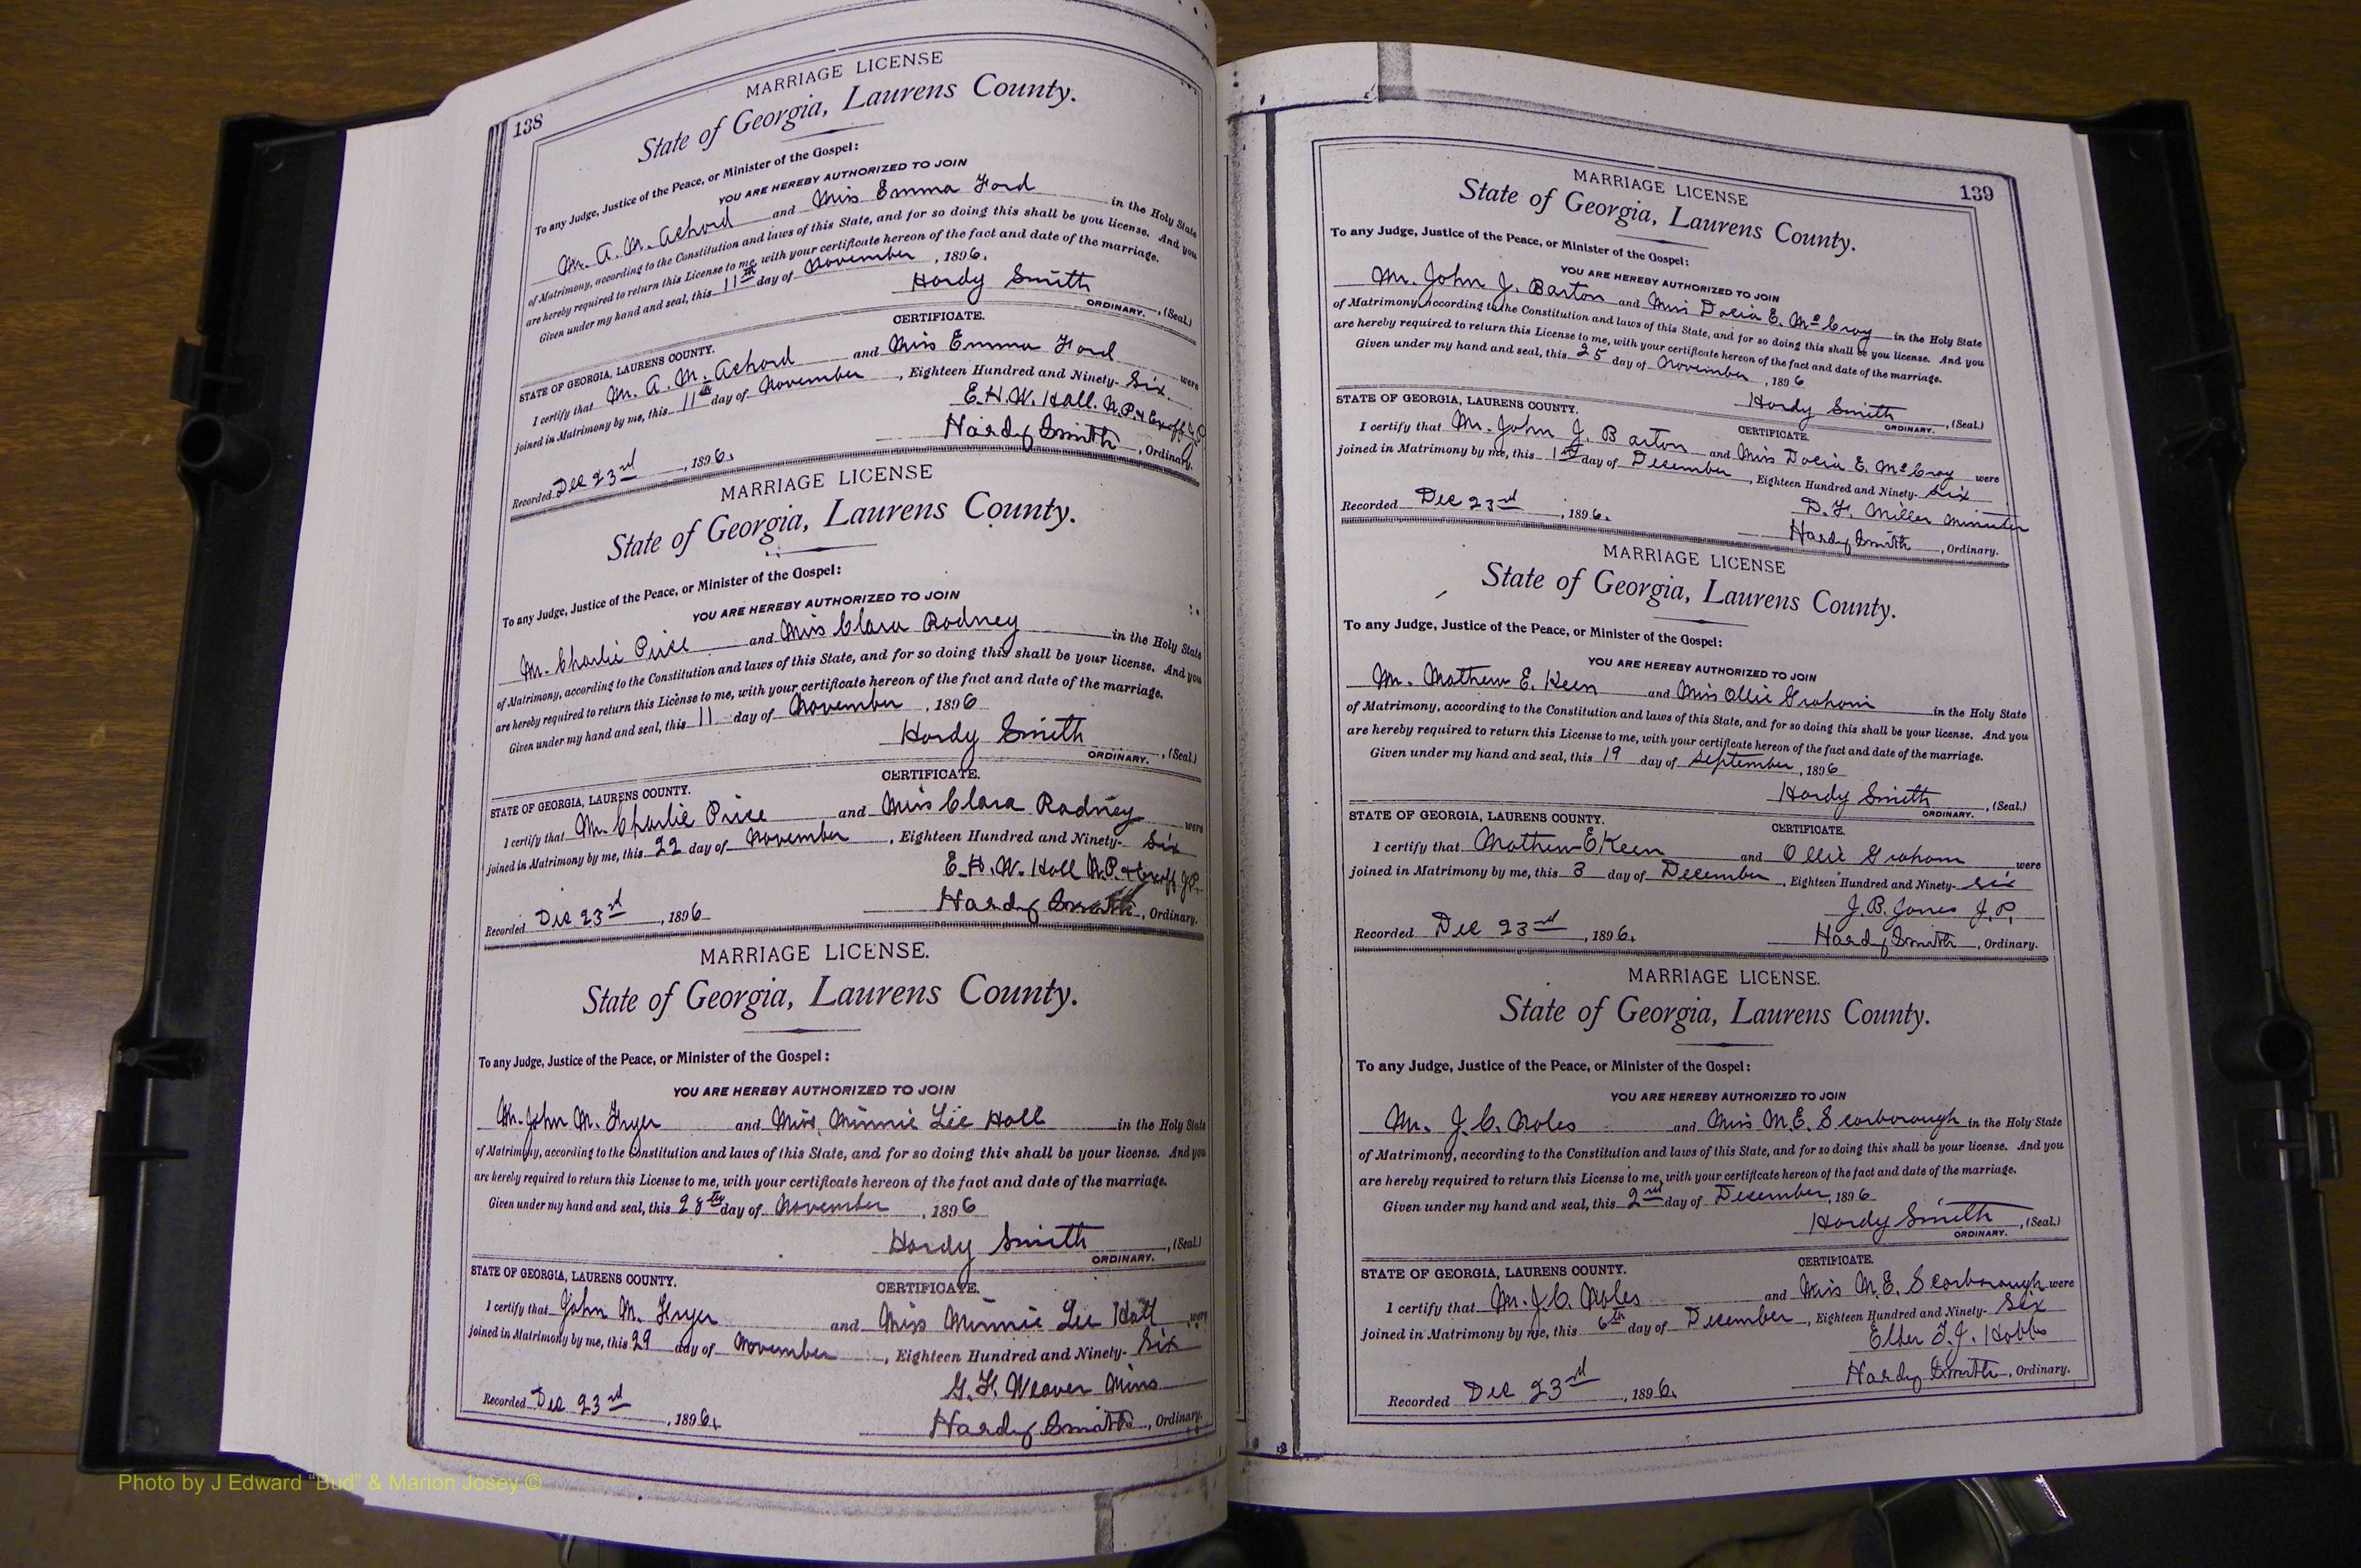 138
MARRIAGE LICENSE
State of Georgia, Laurens County.
To any Judge, Justice of the Peace, or Minister of the Gospel:
YOU ARE HEREBY AUTHORIZED TO JOIN
Mr. A. M. Achord and Miss Emma Ford in the Holy State
of Matrimony, according to the Constitution and laws of this State, and for so doing this shall be you license. And you
are hereby required to return this License to me, with your certificate hereon of the fact and date of the marriage.
Given under my hand and seal, this 11th day of November, 1896.
Hardy Smith, (Seal.)
ORDINARY.
CERTIFICATE.
STATE OF GEORGIA, LAURENS COUNTY.
I certify that Mr. A. M. Achord and Miss Emma Ford were
joined in Matrimony by me, this 11th day of November, Eighteen Hundred and Ninety-Six.
E. H. W. Hall. N.P. & Exoff J.P.
Hardy Smith, Ordinary.
Recorded Dec 23rd, 1896.
MARRIAGE LICENSE
State of Georgia, Laurens County.
To any Judge, Justice of the Peace, or Minister of the Gospel:
YOU ARE HEREBY AUTHORIZED TO JOIN
Mr. Charlie Price and Miss Clara Radney in the Holy State
of Matrimony, according to the Constitution and laws of this State, and for so doing this shall be your license. And you
are hereby required to return this License to me, with your certificate hereon of the fact and date of the marriage.
Given under my hand and seal, this 11 day of November, 1896
Hardy Smith, (Seal.)
ORDINARY.
CERTIFICATE.
STATE OF GEORGIA, LAURENS COUNTY.
I certify that Mr. Charlie Price and Miss Clara Radney were
joined in Matrimony by me, this 22 day of November, Eighteen Hundred and Ninety-Six
E. H. W. Hall N.P. & Exoff J.P.
Hardy Smith, Ordinary.
Recorded Dec 23rd, 1896
MARRIAGE LICENSE.
State of Georgia, Laurens County.
To any Judge, Justice of the Peace, or Minister of the Gospel:
YOU ARE HEREBY AUTHORIZED TO JOIN
Mr. John M. Fryer and Miss, Minnie Lee Hall in the Holy State
of Matrimony, according to the Constitution and laws of this State, and for so doing this shall be your license. And you
are hereby required to return this License to me, with your certificate hereon of the fact and date of the marriage.
Given under my hand and seal, this 28th day of November, 1896
Hardy Smith, (Seal.)
ORDINARY.
CERTIFICATE.
STATE OF GEORGIA, LAURENS COUNTY.
I certify that John M. Fryer and Miss Minnie Lee Hall were
joined in Matrimony by me, this 29 day of November, Eighteen Hundred and Ninety-Six
G. F. Weaver Mins
Hardy Smith, Ordinary.
Recorded Dec 23rd, 1896.
139
MARRIAGE LICENSE
State of Georgia, Laurens County.
To any Judge, Justice of the Peace, or Minister of the Gospel:
YOU ARE HEREBY AUTHORIZED TO JOIN
Mr. John J. Barton and Miss Docia E. McCray in the Holy State
of Matrimony, according to the Constitution and laws of this State, and for so doing this shall be you license. And you
are hereby required to return this License to me, with your certificate hereon of the fact and date of the marriage.
Given under my hand and seal, this 25 day of November, 1896
Hardy Smith, (Seal.)
ORDINARY.
CERTIFICATE.
STATE OF GEORGIA, LAURENS COUNTY.
I certify that Mr. John J. Barton and Miss Docia E. McCray were
joined in Matrimony by me, this 1st day of December, Eighteen Hundred and Ninety-Six
D. F. Miller Minister
Hardy Smith, Ordinary.
Recorded Dec 23rd, 1896.
MARRIAGE LICENSE
State of Georgia, Laurens County.
To any Judge, Justice of the Peace, or Minister of the Gospel:
YOU ARE HEREBY AUTHORIZED TO JOIN
Mr. Mathew E. Keen and Miss Ollie Graham in the Holy State
of Matrimony, according to the Constitution and laws of this State, and for so doing this shall be your license. And you
are hereby required to return this License to me, with your certificate hereon of the fact and date of the marriage.
Given under my hand and seal, this 19 day of September, 1896
Hardy Smith, (Seal.)
ORDINARY.
CERTIFICATE.
STATE OF GEORGIA, LAURENS COUNTY.
I certify that Mathew E Keen and Ollie Graham were
joined in Matrimony by me, this 3 day of December, Eighteen Hundred and Ninety-six
J. B. Jones J. P.
Hardy Smith, Ordinary.
Recorded Dec 23rd, 1896.
MARRIAGE LICENSE.
State of Georgia, Laurens County.
To any Judge, Justice of the Peace, or Minister of the Gospel:
YOU ARE HEREBY AUTHORIZED TO JOIN
Mr. J. C. Noles and Miss M. E. Scarborough in the Holy State
of Matrimony, according to the Constitution and laws of this State, and for so doing this shall be your license. And you
are hereby required to return this License to me, with your certificate hereon of the fact and date of the marriage.
Given under my hand and seal, this 2nd day of December, 1896
Hardy Smith, (Seal.)
ORDINARY.
CERTIFICATE.
STATE OF GEORGIA, LAURENS COUNTY.
I certify that Mr. J. C. Noles and Miss M. E. Scarborough were
joined in Matrimony by me, this 6th day of December, Eighteen Hundred and Ninety-Six
Elder T. J. Hobbs
Hardy Smith, Ordinary.
Recorded Dec 23rd, 1896.
Photo by J Edward “Bud” & Marion Josey ©